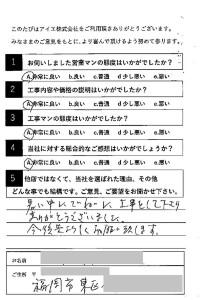 このたびはアイエ株式会社をご利用頂きありがとうございます。
みなさまのご意見をもとに、より喜んで頂けるよう努めて参ります。
1 お伺いしました営業マンの態度はいかがでしたか?
A.非常に良い b.良い c.普通 d.少し悪い e.悪い
2 工事内容や価格の説明はいかがでしたか?
A.非常に良い b.良い c.普通 d.少し悪い e.悪い
3 工事マンの態度はいかがでしたか?
A.非常に良い b.良い c.普通 d.少し悪い e.悪い
4 当社に対する総合的なご感想はいかがでしょうか?
A.非常に良い b.良い c.普通 d.少し悪い e.悪い
5 他店ではなくて、当社を選ばれた理由、その他
どんな事でも結構です。ご意見、ご要望をお聞かせ下さい。
暑い中いでねいに工事をして下さり
ありがとうございました。
今後共よろしくお願い致します。
お名前
ご住所 〒
福岡市東区